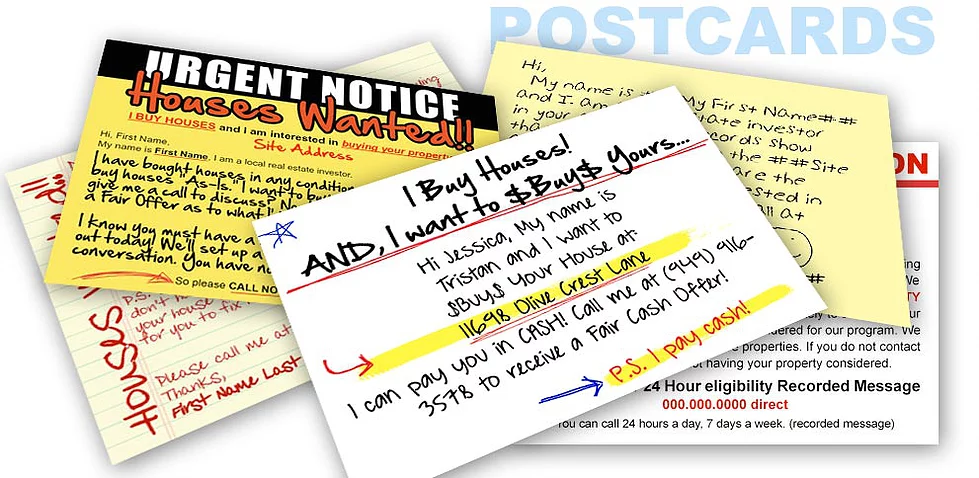 POSTCARDS
URGENT NOTICE
Houses Wanted!!
I BUY HOUSES and I am interested in buying your property
Site Address
Hi, First Name,
My name is First Name. I am a local real estate investor.
I have bought houses in any condition
buy houses "As-Is." I want to buy
give me a call to discuss?
a Fair Offer as to what
I know you must have a
out today! We'll set up a
conversation. You have no
So please CALL NO
Houses
P.S.
your house
for you to fix
Please call me at
Thanks,
First Name Last
I Buy Houses!
AND, I want to $Buy$ Yours...
Hi Jessica, My name is
Tristan and I want to
$Buy$ Your House at:
11698 Olive Crest Lane
I can pay you in CASH! Call me at (949) 916-
3578 to receive a Fair Cash Offer!
P.S. I pay cash!
Hi,
My name is My First Name##
and I am estate investor
in your
records show
the ##Site
are the
interested in
call at
##
ON
ing
We
TY
ur
for our program. We
properties. If you do not contact
not having your property considered.
24 Hour eligibility Recorded Message
000.000.0000 direct
You can call 24 hours a day, 7 days a week. (recorded message)